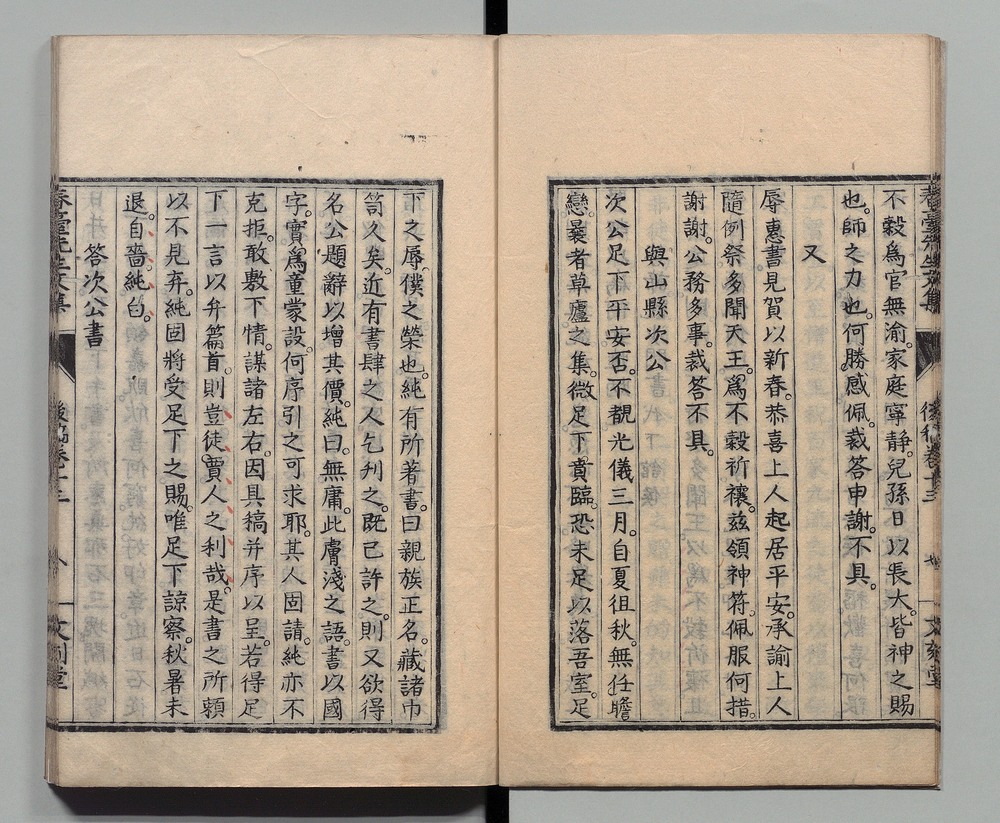 不穀爲官無渝。家庭寧静。兒孫日以長大。皆神之賜
也。師之力也。何勝感佩。裁答申謝。不具。
又
辱惠書。見賀以新春。恭喜上人起居平安。承諭上人
隨例祭多聞天王。爲不穀祈禳。茲領神符。佩服何措。
謝謝。公務多事。裁答不具。
與山縣次公
次公足下平安否。不覩光儀三月。自夏徂秋。無任瞻
戀。曩者草廬之集。微足下賁臨。恐未足以落吾室。足
下之辱。僕之榮也。純有所著書。曰親族正名。藏諸巾
笥久矣。近有書肆之人乞刋之。既已許之。則又欲得
名公題辭以增其價。純曰。無庸。此膚淺之語。書以國
字。實爲童蒙設。何序引之可求耶。其人固請。純亦不
克拒。敢敷下情。謀諸左右。因具稿并序以呈。若得足
下一言以弁篇首。則豈徒賈人之利哉。是書之所賴
以不見弃。純固將受足下之賜。唯足下諒察。秋暑未
退。自嗇。純白。
答次公書
春臺先生文集
後稿卷十三